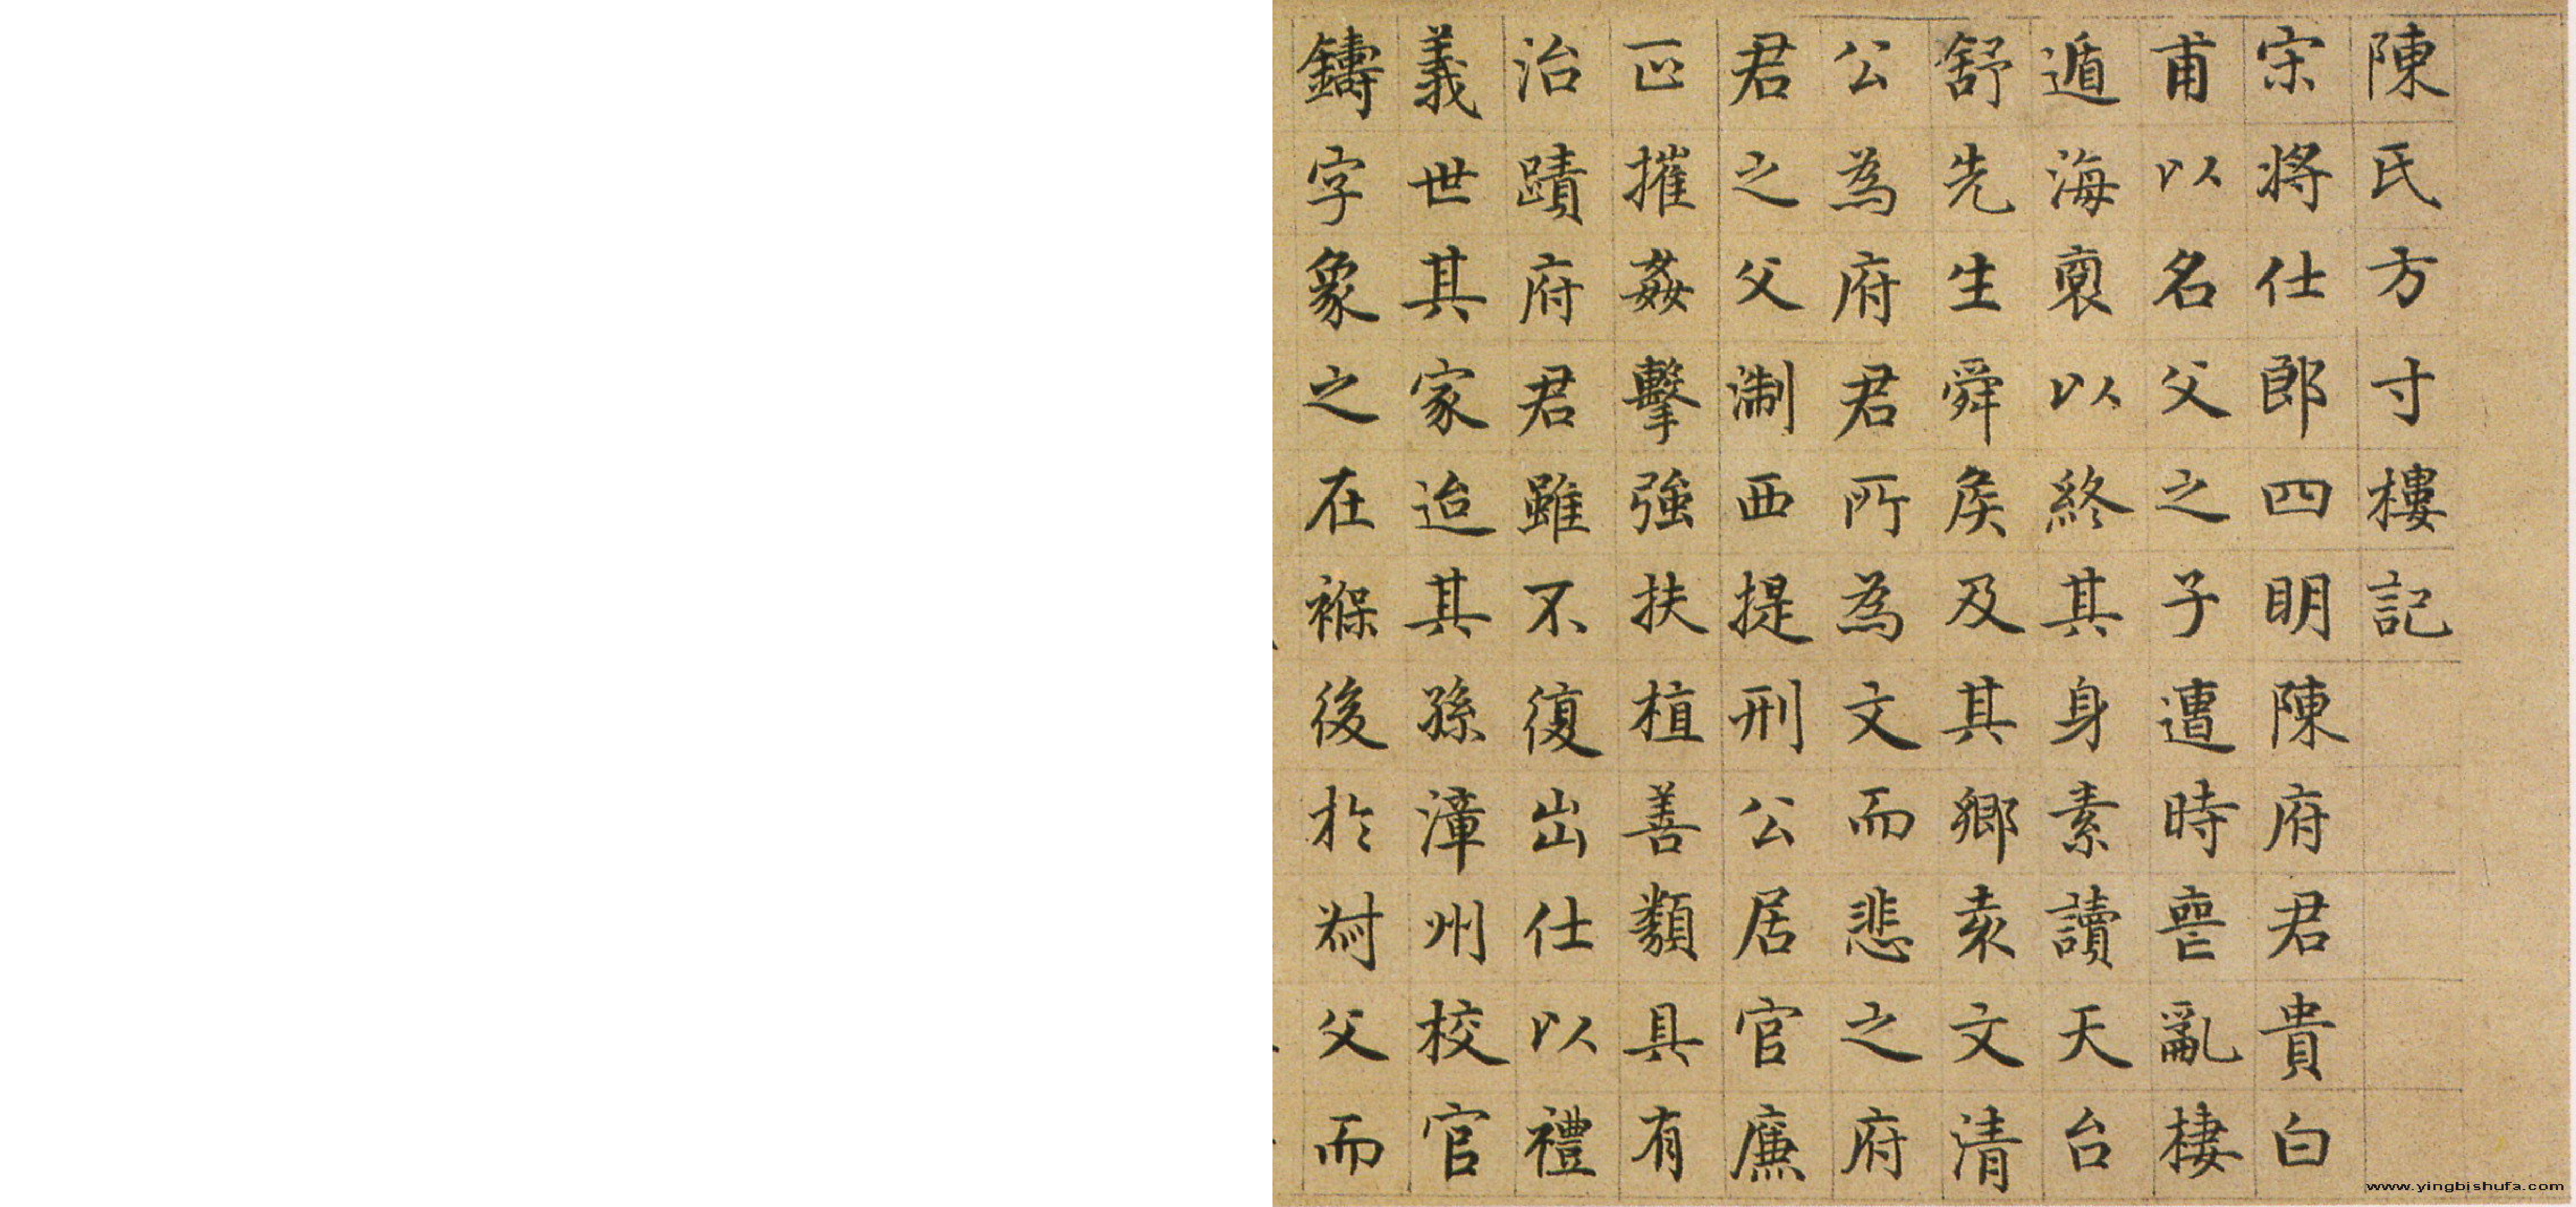 陳氏方寸樓記
宋將仕郎四明陳府君貴白
甫以名父之子遭時喪亂棲
遁海裔以終其身素讀天台
舒先生舜矦及其鄉袁文清
公為府君所為文而悲之府
君之父淛西提刑公居官廉
正摧姦擊強扶植善類具有
治蹟府君雖不復出仕以禮
義世其家迨其孫漳州校官
鑄字象之在褓後於父而
www.yingbishufa.com